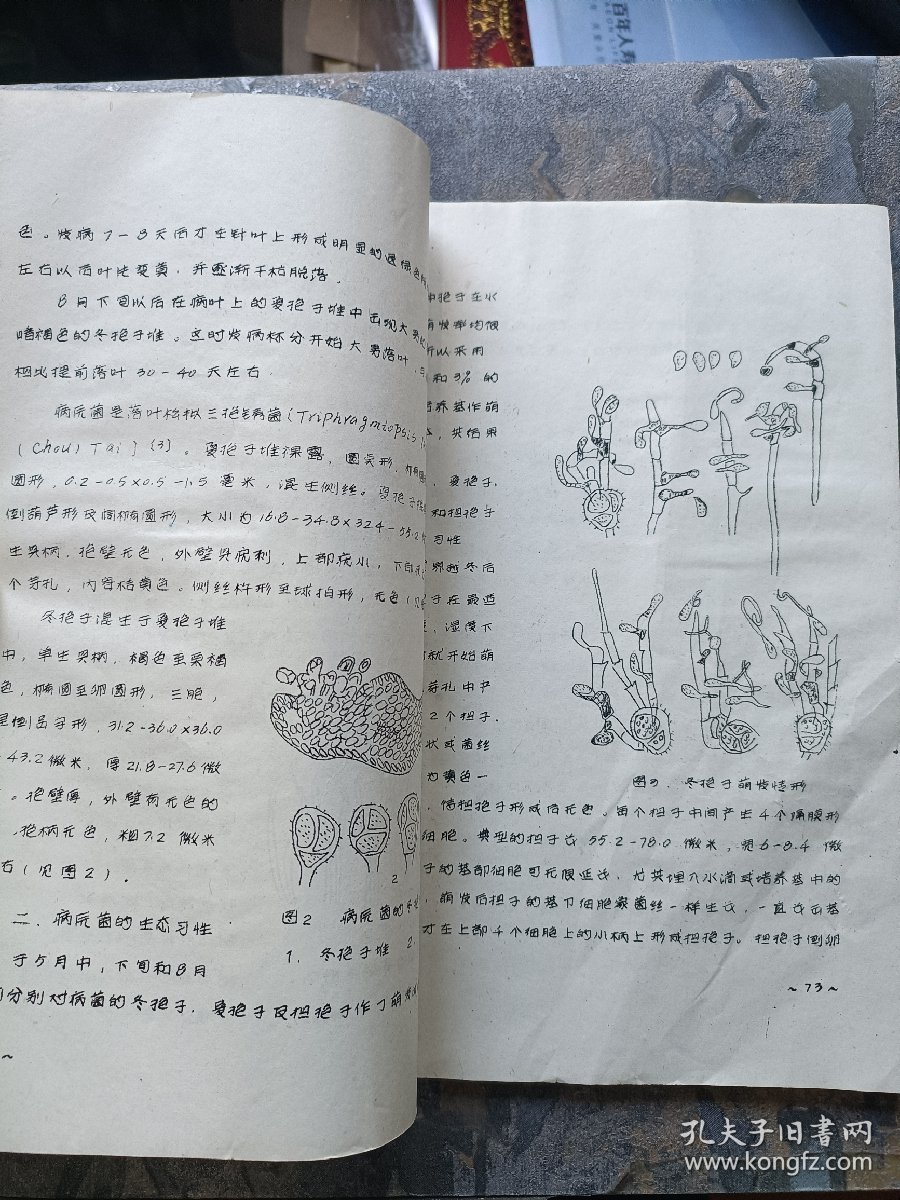 百年人寿
色。发病7-8天后才在针叶上形成明显的褪绿色
左右以后叶片变黄，并逐渐干枯脱落。
8月下旬以后在病叶上的夏孢子堆中出现大
暗褐色的冬孢子堆。这时发病林分开始大量落叶，
相比提前落叶30-40天左右.
病原菌是落叶松拟三孢锈菌(Triphragmiopsis
(Chou) Tai](3)。夏孢子堆裸露，圆形、椭圆
圆形，0.2-0.5×0.5-1.5毫米，混生侧丝。夏孢子
倒葫芦形及阔椭圆形，大小为16.8-34.8×32.4-55.2
生具柄，孢壁无色，外壁具疣刺，上部疣小，下部
个芽孔，内容桔黄色。侧丝杵形至球拍形，无色(
冬孢子混生于夏孢子堆
中，单生具柄，褐色至深褐
色，椭圆至卵圆形，三胞，
呈倒品字形，31.2-36.0×36.0
43.2微米，厚21.8-27.6微
。孢壁厚，外壁有无色的
，孢柄无色，粗7.2微米
右(见图2).
二、病原菌的生态习性
于5月中，下旬和8月
分别对病菌的冬孢子，夏孢子及担孢子作了萌发
2
图2 病原菌的冬
1. 冬孢子堆 2
~
中孢子在水
萌发率均很
所以采用
和3%的
培养基作萌
，其结果
，夏孢子.
和担孢子
习性
界越冬后
子在最适
，湿度下
就开始萌
芽孔中产
2个担子.
状或菌丝
为黄色一
图3. 冬孢子萌发情形
，待担孢子形成后无色。每个担子中间产生4个隔膜形
细胞。典型的担子长55.2-78.0微米，宽6-8.4微
子的基部细胞可无限延长，尤其埋入水滴或培养基中的
，萌发后担子的基部细胞象菌丝一样生长，一直长出基
才在上部4个细胞上的小柄上形成担孢子。担孢子倒卵
~73~
孔夫子旧书网
www.kongfz.com